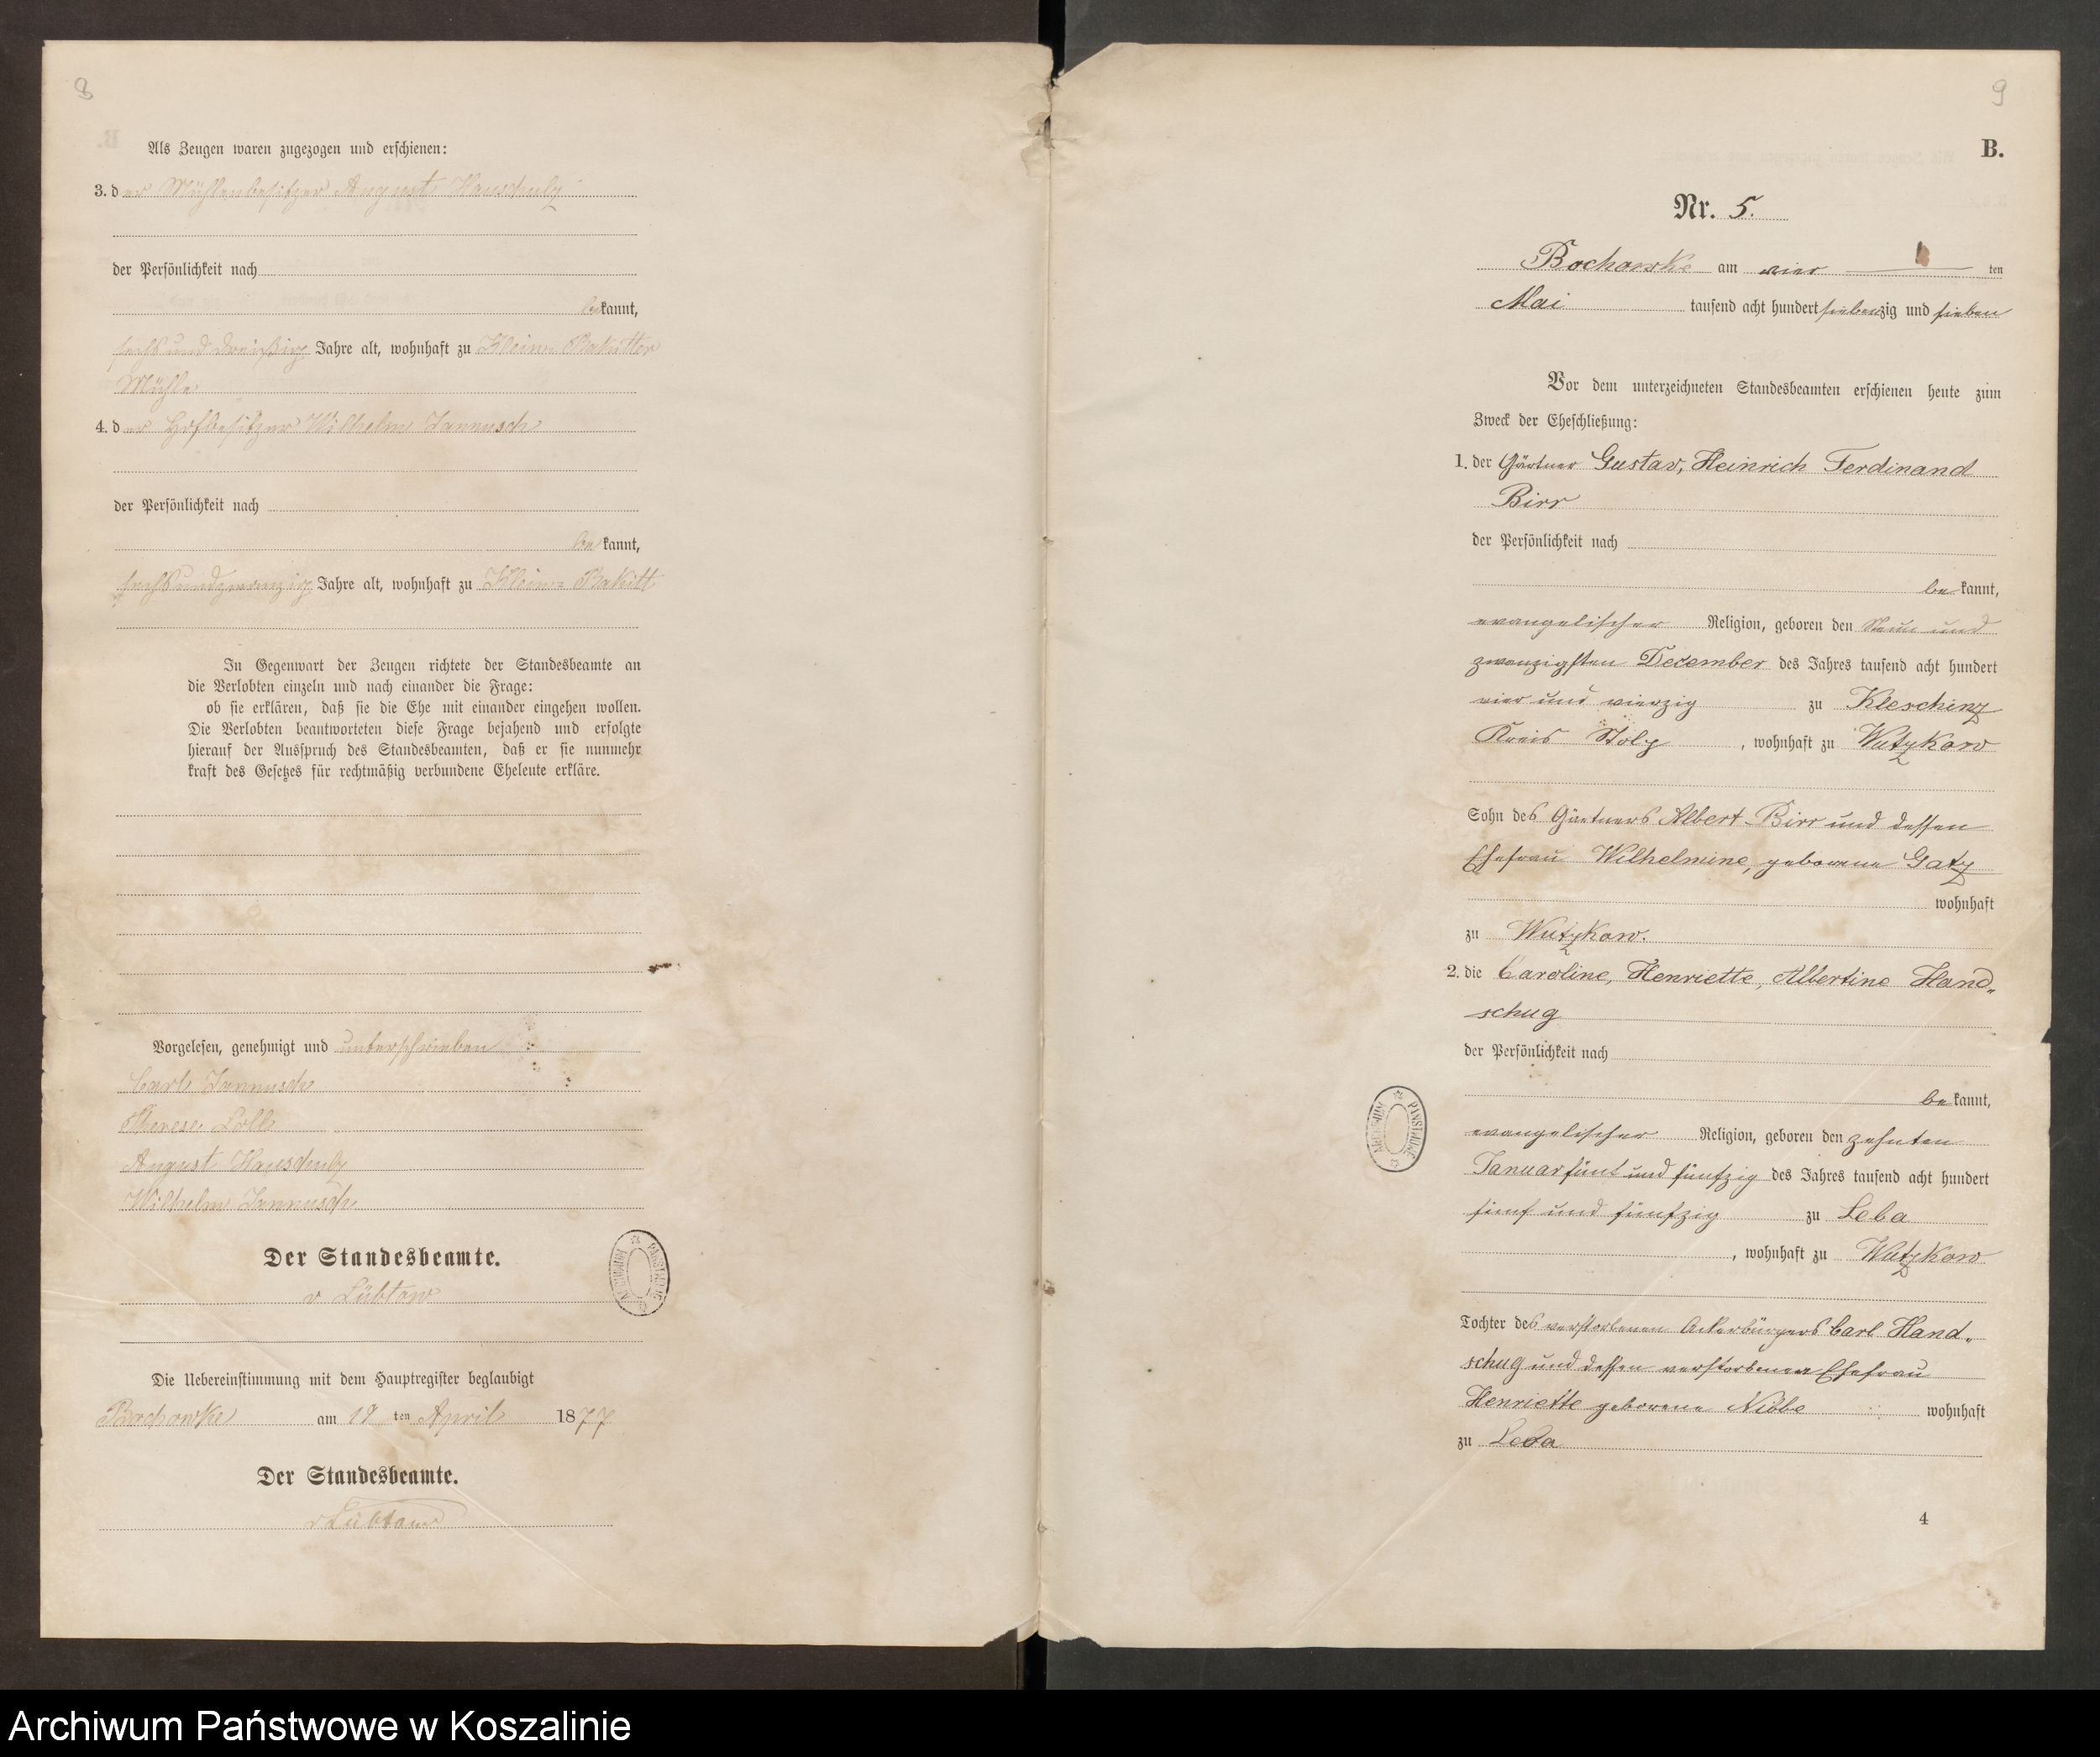 8
Als Zeugen waren zugezogen und erschienen:
3. der Mühlenbesitzer August Hauschulz
der Persönlichkeit nach
bekannt,
sechs und dreißig Jahre alt, wohnhaft zu Klein Rakitter
Mühle
4. der Hofbesitzer Wilhelm Jannusch
der Persönlichkeit nach
be kannt,
sechsundzwanzig Jahre alt, wohnhaft zu Klein Rakitt
In Gegenwart der Zeugen richtete der Standesbeamte an
die Verlobten einzeln und nach einander die Frage:
ob sie erklären, daß sie die Ehe mit einander eingehen wollen.
Die Verlobten beantworteten diese Frage bejahend und erfolgte
hierauf der Ausspruch des Standesbeamten, daß er sie nunmehr
kraft des Gesetzes für rechtmäßig verbundene Eheleute erkläre.
Vorgelesen, genehmigt und unterschrieben
Carl Jannusch
Therese Lolle
August Hauschulz
Wilhelm Jannusch
Der Standesbeamte.
v Lübtow
Die Uebereinstimmung mit dem Hauptregister beglaubigt
Bochowke am 19 ten April 1877
Der Standesbeamte.
v Lübtow
ARCHIWUM PAŃSTWOWE
9
B.
Nr. 5.
Bochowke am vier ten
Mai tausend acht hundert siebenzig und sieben
Vor dem unterzeichneten Standesbeamten erschienen heute zum
Zweck der Eheschließung:
1. der Gärtner Gustav, Heinrich Ferdinand
Birr
der Persönlichkeit nach
be kannt,
evangelischer Religion, geboren den Neun und
zwanzigsten December des Jahres tausend acht hundert
vier und vierzig zu Kleschinz
Kreis Stolp, wohnhaft zu Wutzkow
Sohn des Gärtners Albert Birr und dessen
Ehefrau Wilhelmine, geborene Gatz
wohnhaft
zu Wutzkow.
2. die Caroline, Henriette, Albertine Hand„
schug
der Persönlichkeit nach
be kannt,
evangelischer Religion, geboren den zehnten
Januar fünf und fünfzig des Jahres tausend acht hundert
fünf und fünfzig zu Leba
, wohnhaft zu Wutzkow
Tochter des verstorbenen Ackerbürgers Carl Hand„
schug und dessen verstorbenen Ehefrau
Henriette geborene Nibbe wohnhaft
zu Leba
4
ARCHIWUM PAŃSTWOWE
Archiwum Państwowe w Koszalinie